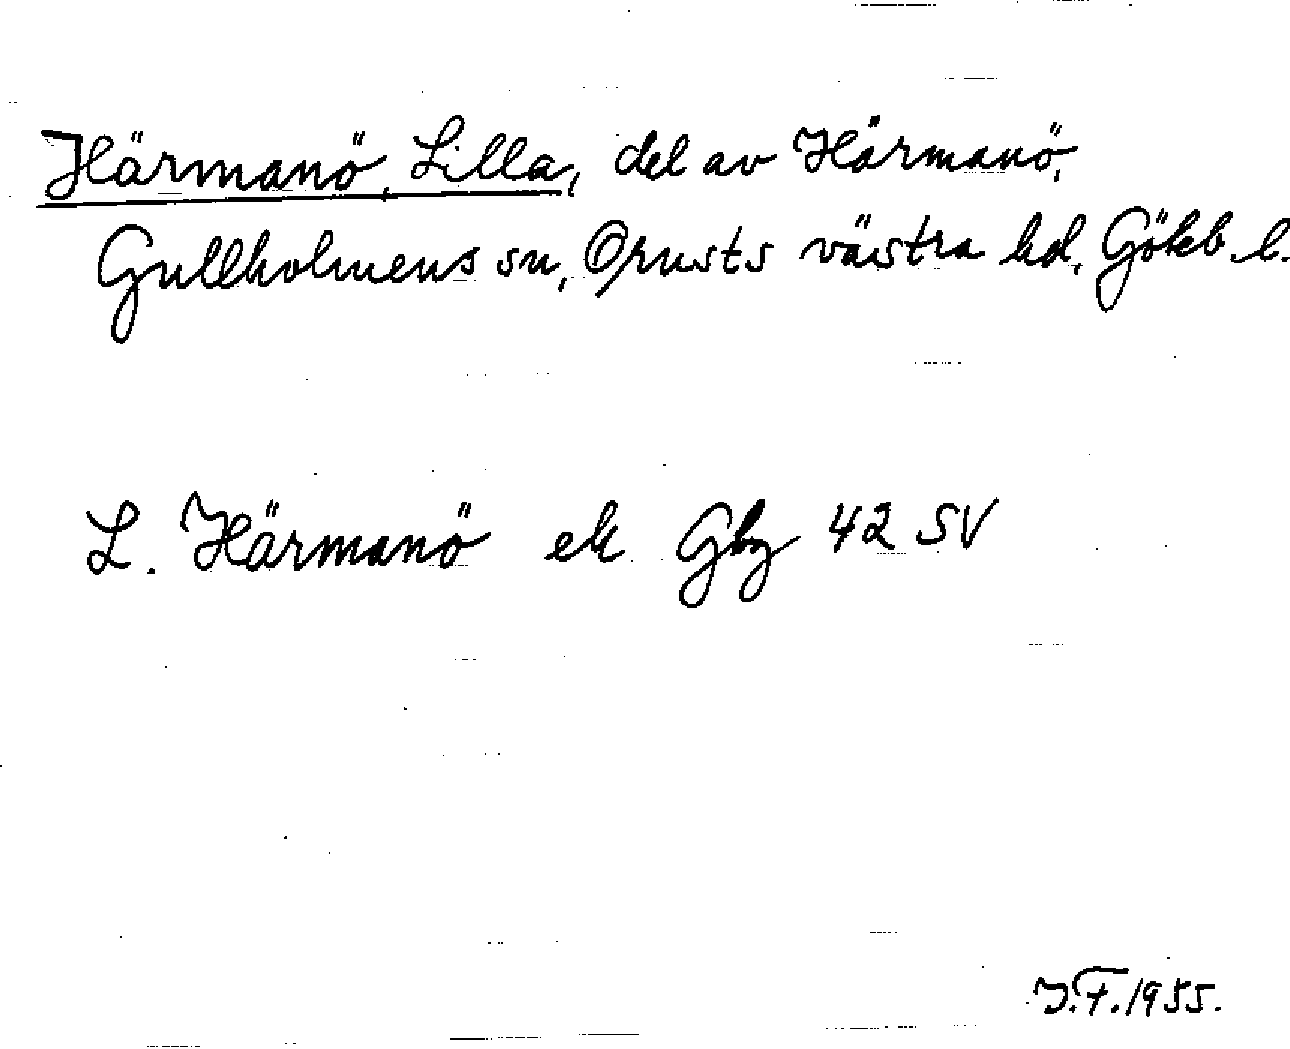 Härmanö, Lilla, del av Härmanö,
Gullholmens sn, Orusts västra hd, Gökb. l.
L. Härmanö ek Gbg 42 SV
J.F. 1955.